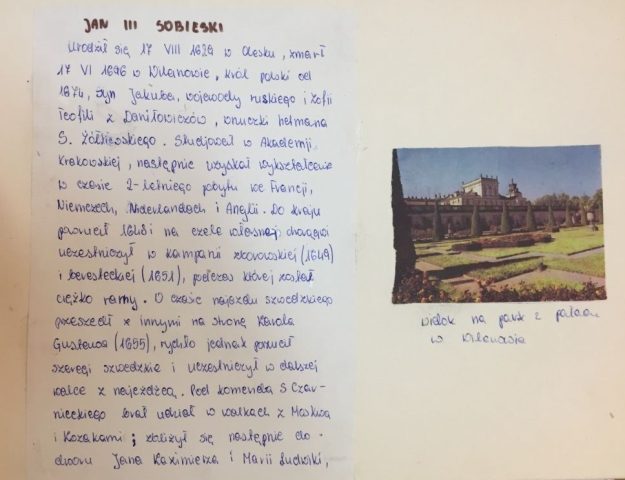 JAN III SOBIESKI
Urodził się 17 VIII 1629 w Olesku, zmarł
17 VI 1696 w Wilanowie, król polski od
1674, syn Jakuba, wojewody ruskiego i Zofii
Teofili z Daniłowiczów, wnuczki hetmana
S. Żółkiewskiego. Studiował w Akademii
Krakowskiej, następnie uzyskał wykształcenie
w czasie 2-letniego pobytu we Francji,
Niemczech, Niderlandach i Anglii. Do kraju
powrócił 1648 i na czele własnej chorągwi
uczestniczył w kampanii zborowskiej (1649)
i beresteckiej (1651), podczas której został
ciężko ranny. W czasie najazdu szwedzkiego
przeszedł z innymi na stronę Karola
Gustawa (1655), rychło jednak porzucił
szeregi szwedzkie i uczestniczył w dalszej
walce z najeźdźcą. Pod komendą S. Czar-
nieckiego brał udział w walkach z Moskwą
i Kozakami; zbliżył się następnie do
dworu Jana Kazimierza i Marii Ludwiki,
Widok na park z pałacu
w Wilanowie